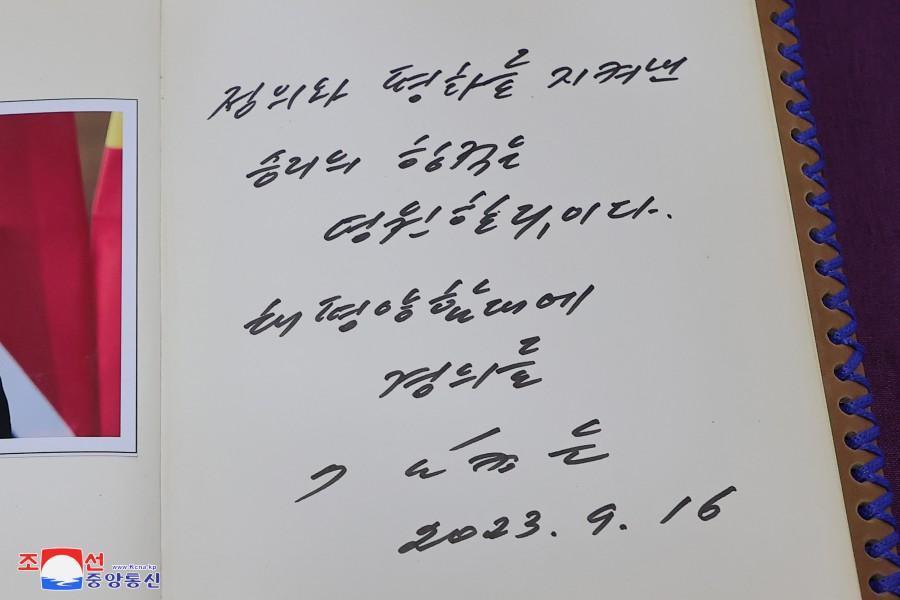 정의와 평화를 지켜낸
승리의 항적은
영원하리라.
태평양함대에
경의를
김정은
2023. 9. 16
조선
www.kcna.kp
중앙통신